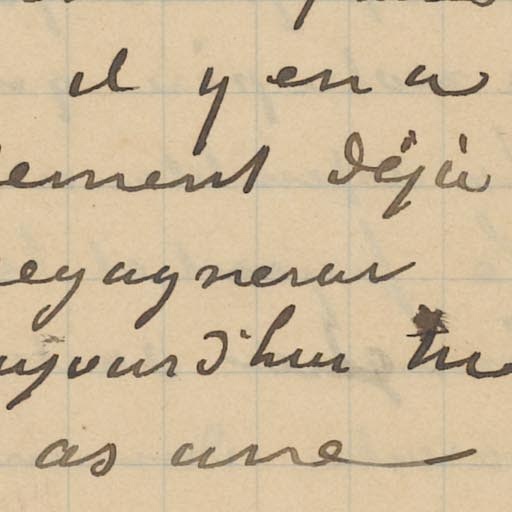 il y en a
ement déjà
egagnerai
ujourd'hui tu
as une